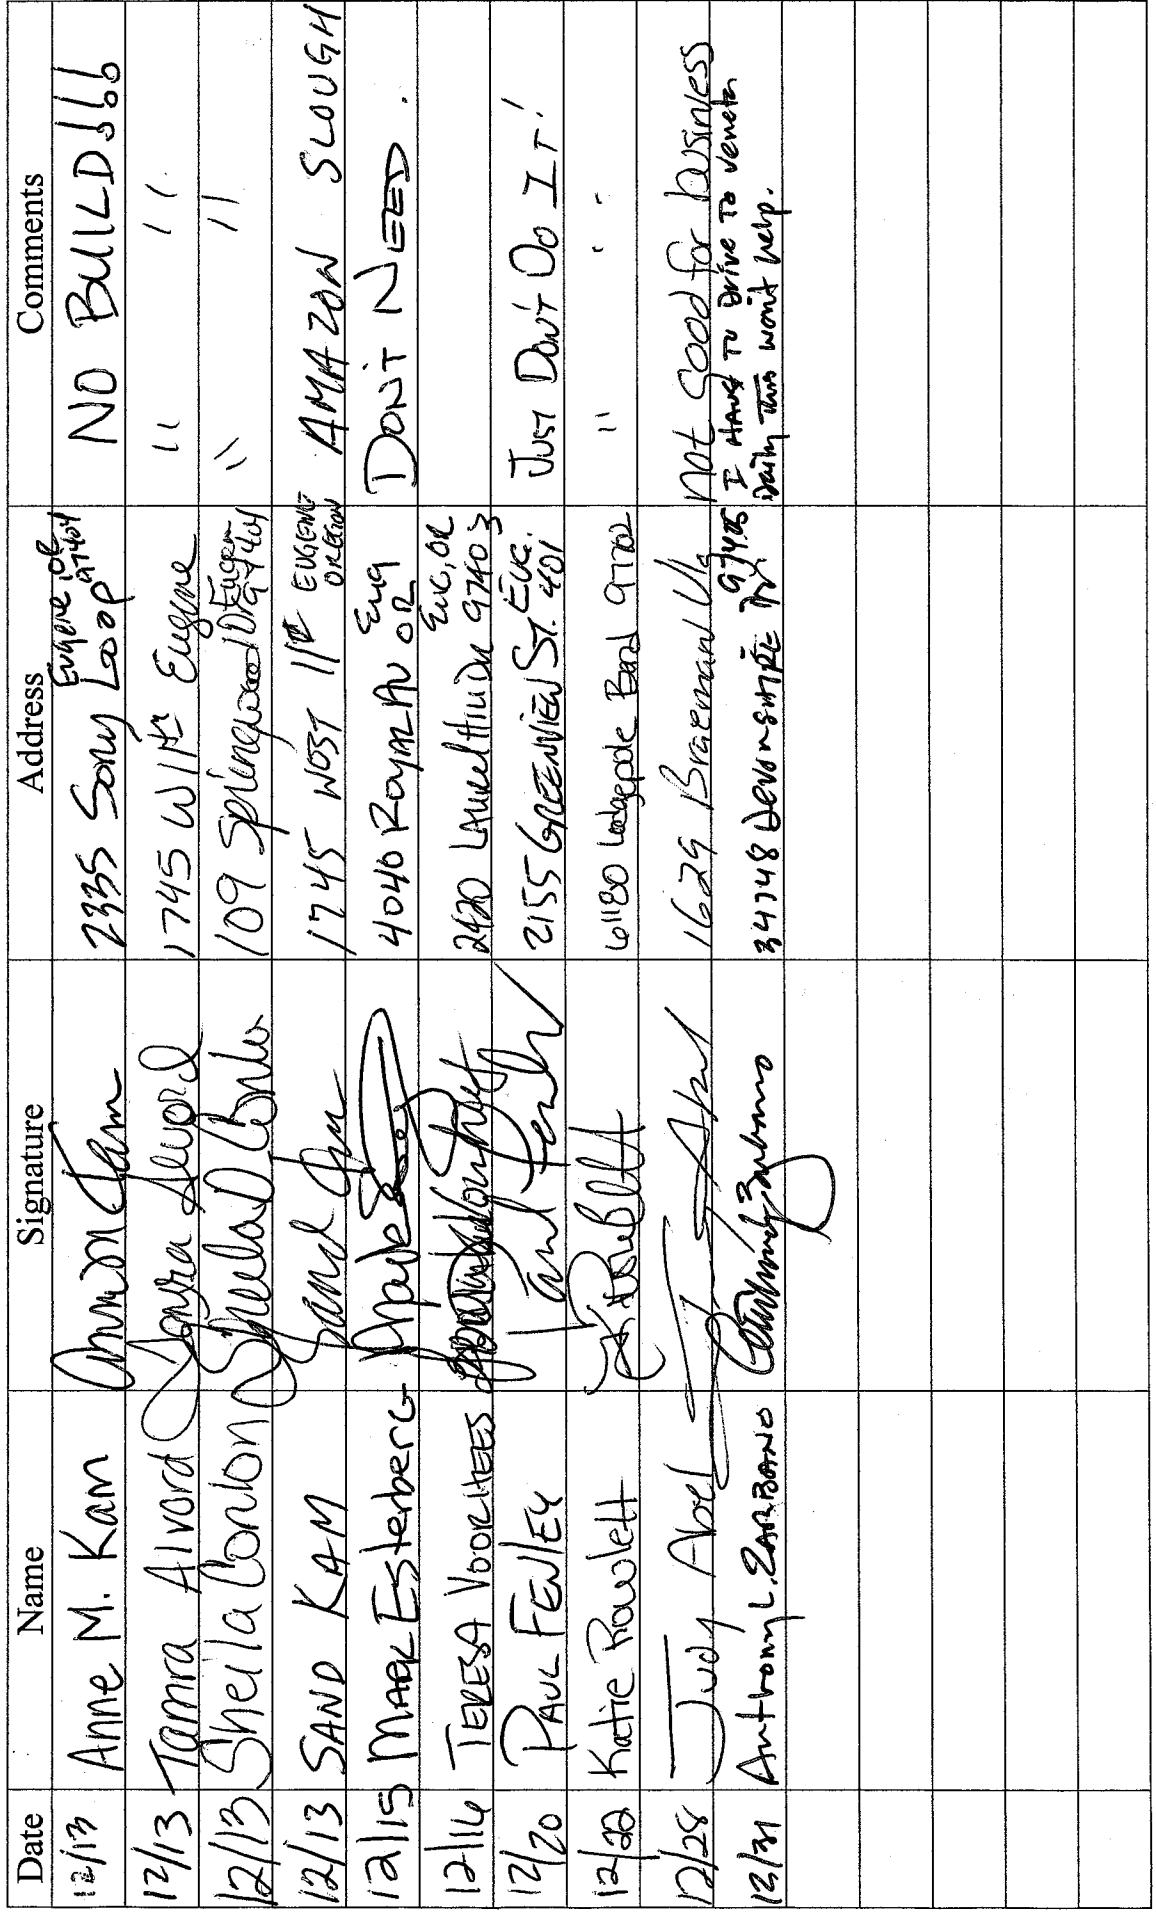 Date Name Signature Address Comments
12/13 Anne M. Kam 2335 Sony Loop Eugene, OR 97404 NO BUILD!!!
12/13 Tamra Alvord Tamra Alvord 1745 W 11th Eugene " "
12/13 Sheila Conlon Sheila Conlon 109 Springwood Dr Eugene 97404 " "
12/13 SAND KAM Sand 1745 WEST 11th EUGENE OREGON AMAZON SLOUGH
12/15 MARK Esterberg 4040 ROYAL AV Eug OR DON'T NEED.
12/16 TERESA VOORHEES 2420 Laurel Hill Dr Eug, OR 97403
12/20 PAUL FENLEY Paul 2155 GREENVIEW ST. EUG. 401 JUST DON'T DO IT!
12/22 Katie Rowlett 61180 Lodgepole Bend 97702 " "
12/28 Judy Abel J Abel 1629 Braeman Vlg not good for business
12/31 Anthony L. ZARBANO Anthony Zarbano 34748 Devonshire 97405 I HAVE TO Drive To Veneta
Daily This won't help.